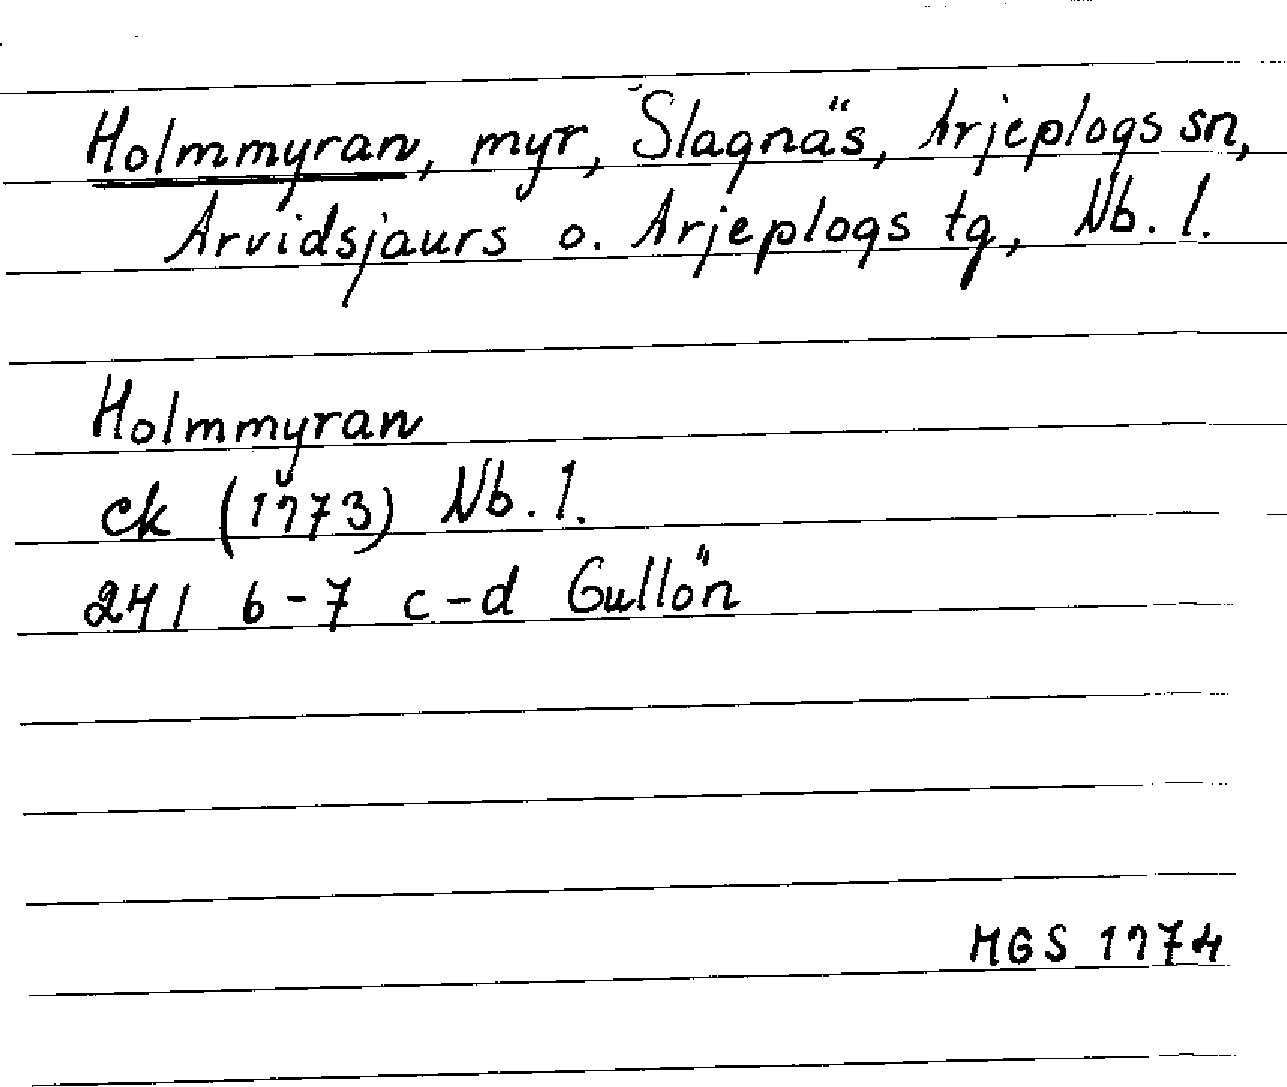 Holmmyran, myr, Slagnäs, Arjeplogs sn,
Arvidsjaurs o. Arjeplogs tg, Nb. l.
Holmmyran
ek (1973) Nb. l.
24 I 6-7 c-d Gullön
MGS 1974